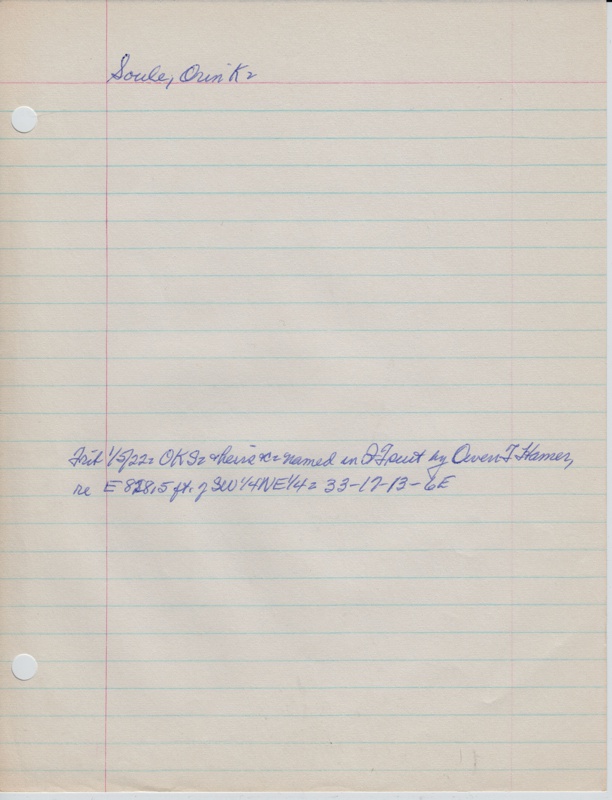 Soule, Orin K=
Trib 1/5/22= OKS= & heirs &c= named in QT suit by Owen T Hamer,
re E 828.5 ft. of SW 1/4 NE 1/4= 33-17-13-6E